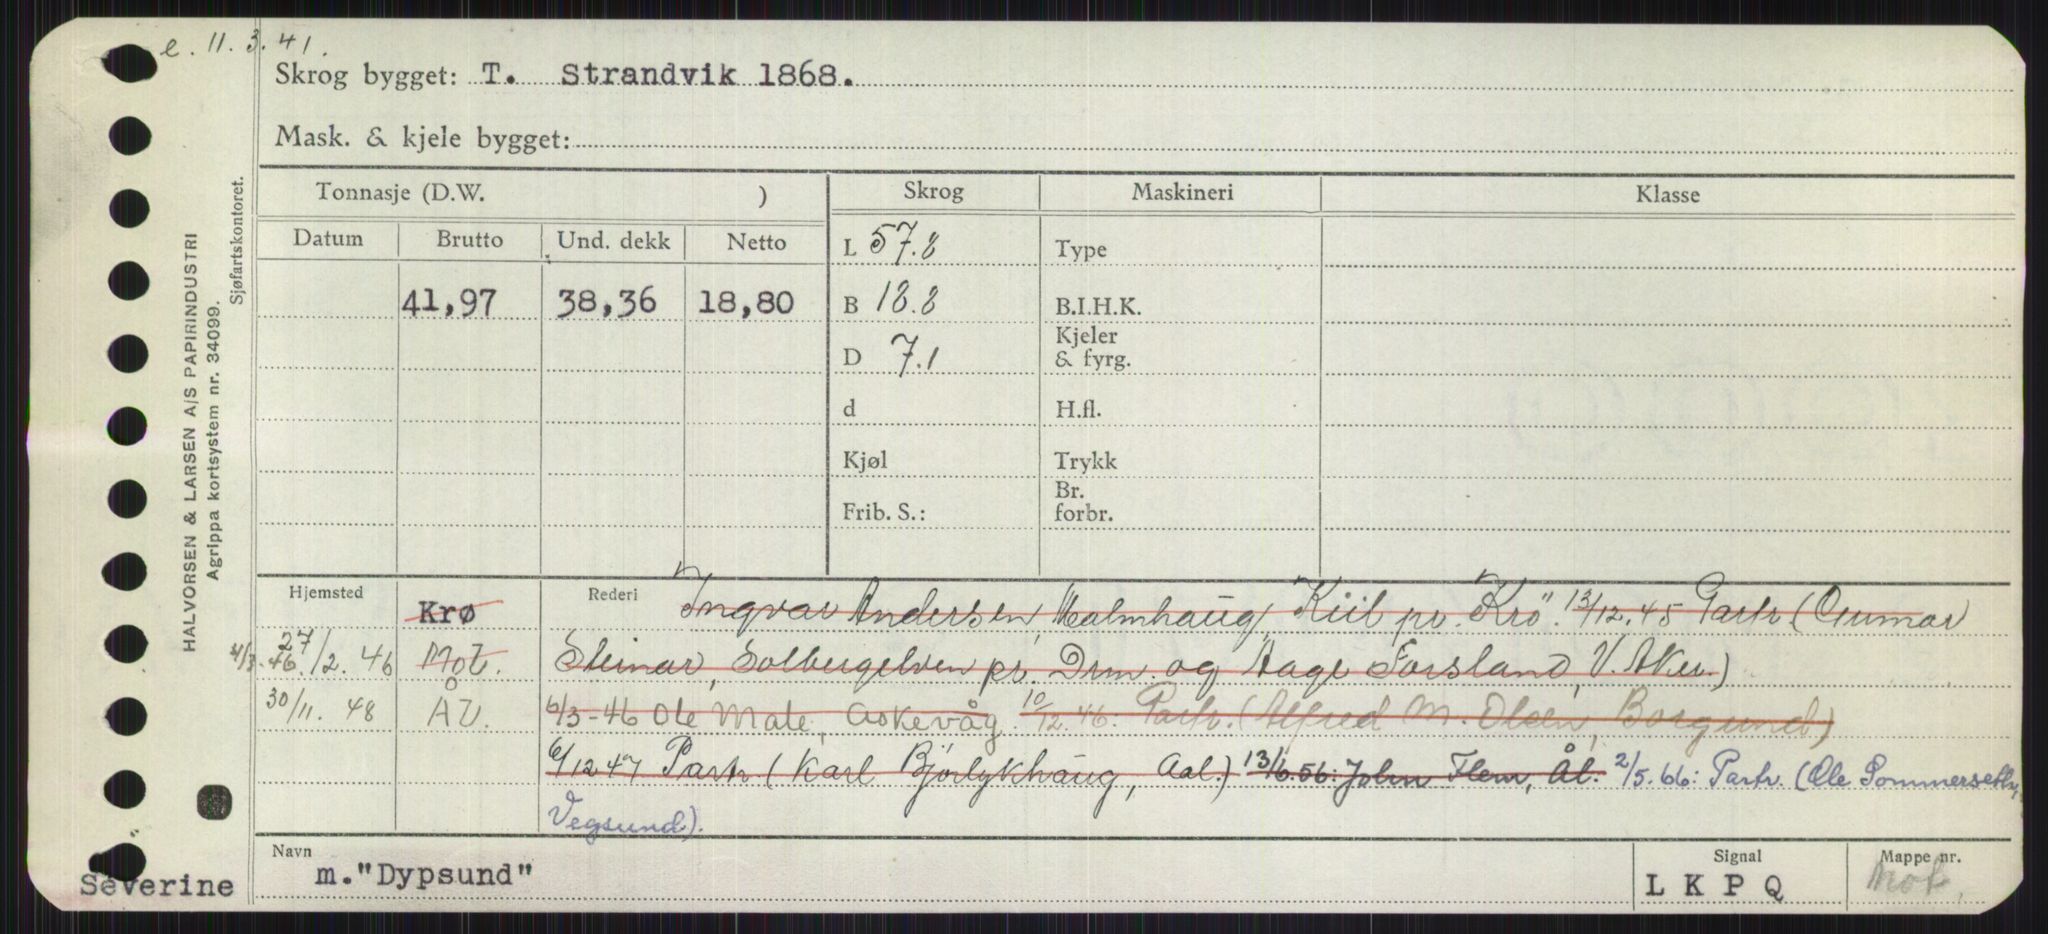 e. 11.3.41.
Skrog bygget: T. Strandvik 1868.
Mask. & kjele bygget:
HALVORSEN & LARSEN A/S PAPIRINDUSTRI
Agrippa kortsystem nr. 34099.
Sjøfartskontoret.
Tonnasje (D.W. )
Skrog
Maskineri
Klasse
Datum Brutto Und. dekk Netto
41,97 38,36 18,80
L 57.8
B 18.8
D 7.1
d
Kjøl
Frib. S.:
Type
B.I.H.K.
Kjeler
& fyrg.
H.fl.
Trykk
Br.
forbr.
Hjemsted Krø Rederi Ingvar Andersen, Malmhaug, Kiil pr. Krø. 13/12.45 Partr. (Gunnar
27/2.46 Mot. Steinar, Solbergelven pr. Drm. og Aage Forsland, V. Aker.)
30/11.48 ÅV. 6/3-46 Ole Male, Askevåg. 10/12.46. Partr. (Alfred M. Olsen, Borgund)
6/12 47 Partr. (Karl Bjørlykhaug, Aal.) 13/6.56: John Flem, Ål. 2/5.66: Partr. (Ole Sommerseth,
Vegsund).
Navn
m."Dypsund"
Severine
Signal
L K P Q
Mappe nr.
Mot.